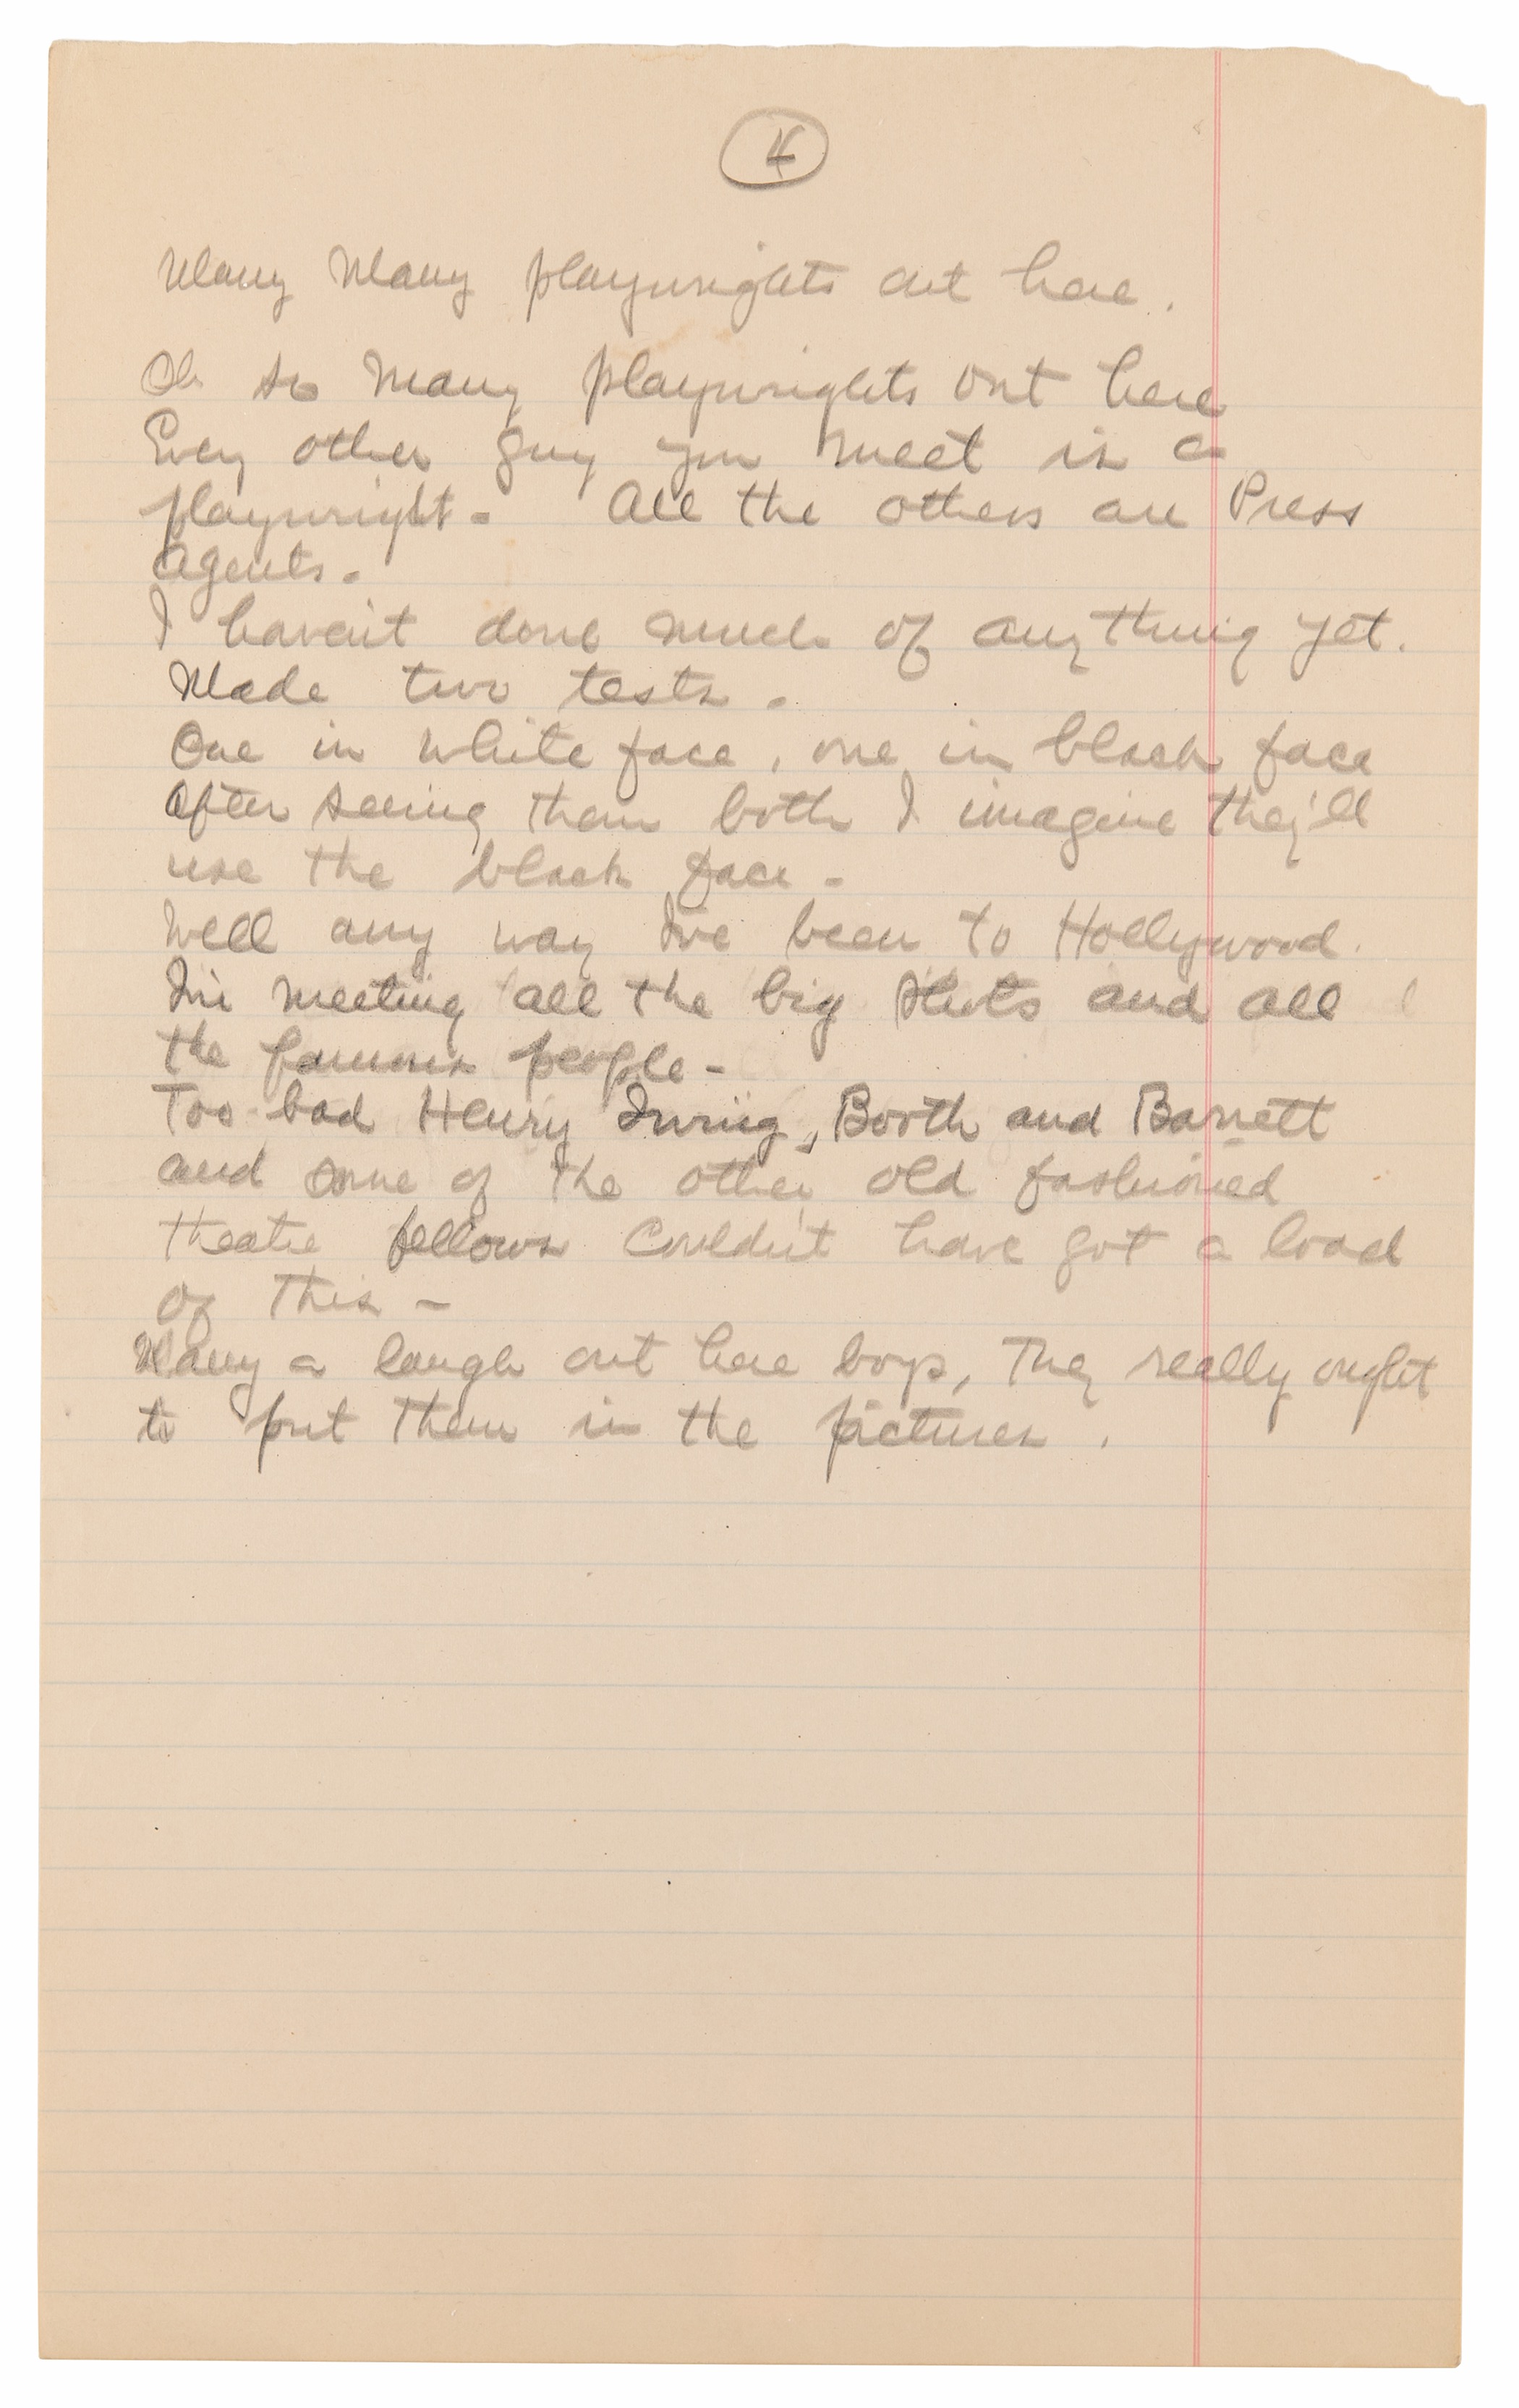 4
Many Many playwrights out here.
Oh so many playwrights out here
Every other guy you meet is a
playwright - All the others are Press
Agents -
I haven't done much of anything yet.
Made two tests -
One in white face, one in black face
After seeing them both I imagine they'll
use the black face -
Well any way I've been to Hollywood.
I'm meeting all the big shots and all
the famous people -
Too bad Henry Irving, Booth and Barrett
and some of the other old fashioned
theatre fellows couldn't have got a load
of this -
Many a laugh out here boys, They really ought
to put them in the pictures.